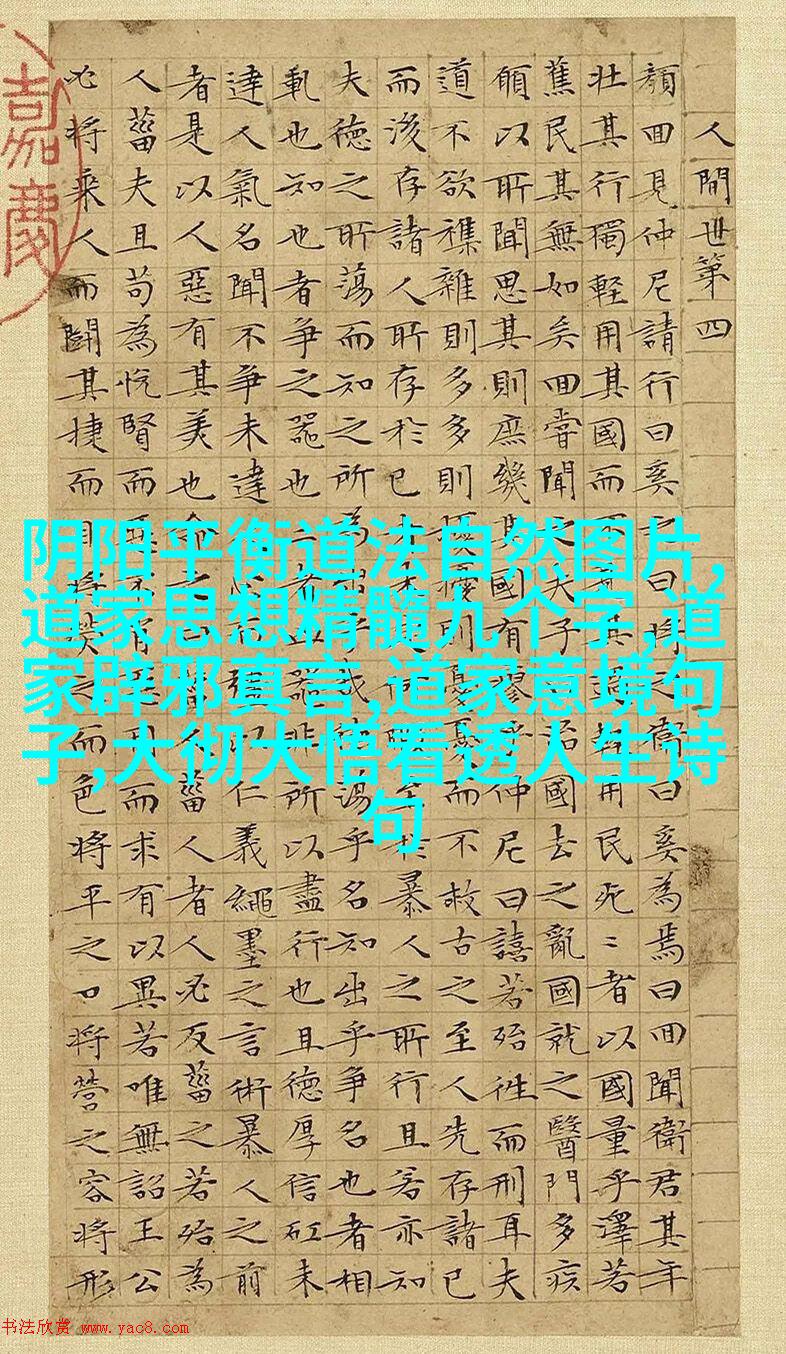 人間世第四
顏回見仲尼請行曰奚之曰將之衛曰奚為焉曰回聞衛君其年
壯其行獨輕用其國而不見其過輕用民死〻者以國量乎澤若
蕉民其無如矣回嘗聞之夫子曰治國去之亂國就之醫門多疾
願以所聞思其則庶幾其國有瘳乎仲尼曰譆若殆往而刑耳夫
道不欲襍雜則多多則擾擾則憂憂而不救古之至人先存諸已
而後存諸人所存於已者未定何暇至於暴人之所行且若亦知
夫德之所蕩而知之所為出乎哉德蕩乎名知出乎爭名也者相
軋也知也者爭之器也二者凶器非所以盡行也且德厚信矼未
達人氣名聞不爭未達人心而彊以仁義繩墨之言術暴人之前
者是以人惡有其美也命之曰菑人菑人者人必反菑之若殆為
人菑夫且苟為悅賢而惡不肖惡用而求有以異若唯無詔王公
必將乘人而鬬其捷而目將熒之而色將平之口將營之容將形
嘉慶
阴阳平衡道法自然图片,
道家思想精髓九个字,道
家辟邪真言,道家意境句
子,大彻大悟看透人生诗
句
书法欣赏 www.yac8.com